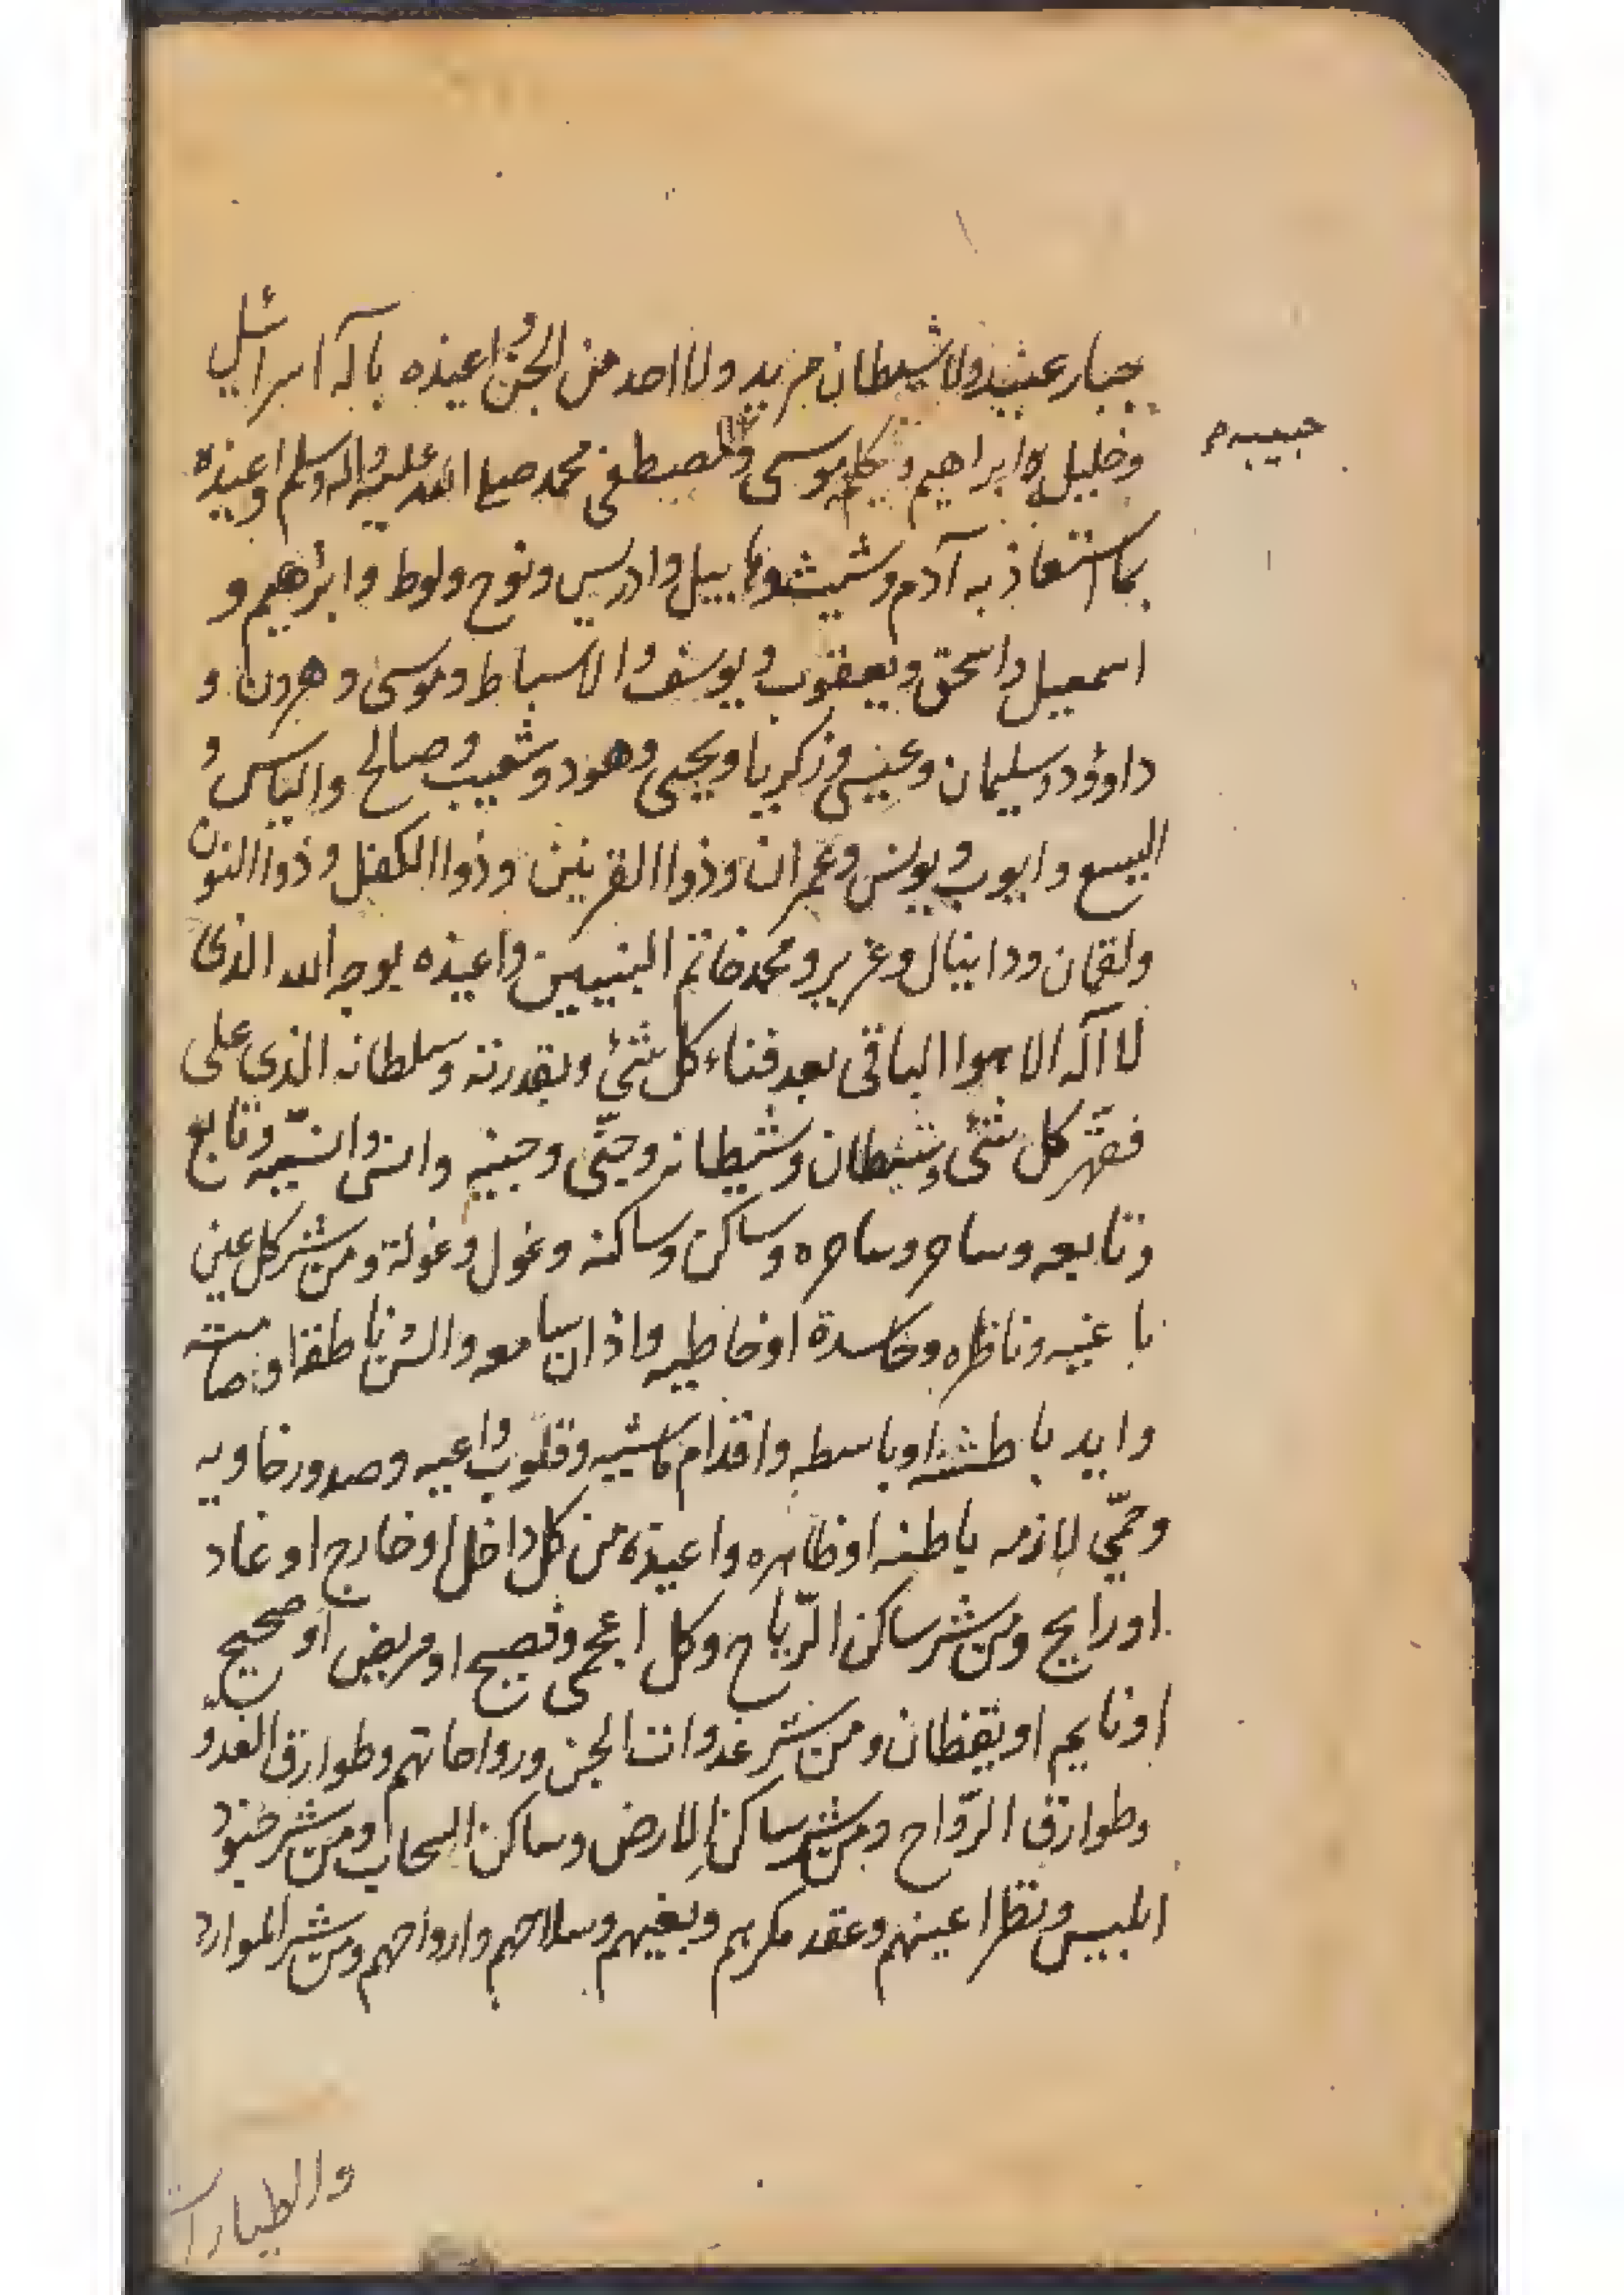 جبار عنيد ولا شيطان مريد ولا احد من الجن واعيذه باله اسرائيل
حبيبه م
وخليله ابراهيم وكليمه موسى والمصطفى محمد صلى الله عليه واله وسلم واعيذه
بما استعاذ به آدم وشيث وهابيل وادريس ونوح ولوط وابراهيم و
اسمعيل واسحق ويعقوب ويوسف والاسباط وموسى وهرون و
داوود وسليمان وعيسى وزكريا ويحيى وهود وشعيب وصالح والياس و
اليسع وايوب ويونس وعمران وذوا القرنين وذوا الكفل وذوا النون
ولقمان ودانيال وعزير ومحمد خاتم النبيين واعيذه بوجه الله الذى
لا آله الا هوا الباقى بعد فناء كل شئ وبقدرته وسلطانه الذي على
فقهر كل شئى وشيطان وشيطانه وجنّى وجنيه وانسى وانسيّه وتابع
وتابعه وساحر وساحره وساكن وساكنه وغول وغولة ومن شر كل عين
باغيه وناظره وحاسدة او خاطيه واذان سامعه والسن ناطقة او صامته
وايد باطشه او باسطه واقدام ماشيه وقلوب واعيه وصدور خاويه
وحمّي لازمه باطنه او ظاهره واعيذه من كل داخل او خارج او غاد
او رايح ومن شر ساكن الرّياح وكل اعجمى وفصيح او مريض او صحيح
او نايم او يقظان ومن شر غدوات الجن ورواحاتهم وطوارق الغدو
وطوارق الرّواح ومن شر ساكن الارض وساكن السحاب ومن شر جنود
ابليس ونظر اعينهم وعقد مكرهم وبغيهم وسلاحهم وارواحهم ومن شر الموارد
والطيارات